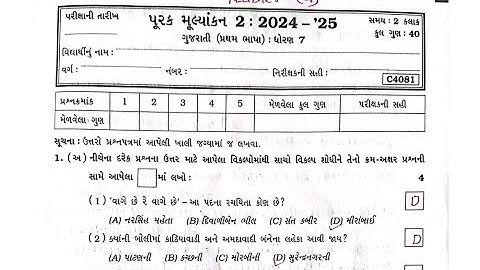 પરીક્ષાની તારીખ
પૂરક મૂલ્યાંકન 2 : 2024 - '25
સમય : 2 કલાક
ગુજરાતી (પ્રથમ ભાષા) : ધોરણ 7
કુલ ગુણ : 40
વિદ્યાર્થીનું નામ :
વર્ગ : નંબર : નિરીક્ષકની સહી :
C4081
પ્રશ્નક્રમાંક 1 2 3 4 5 મેળવેલા કુલ ગુણ પરીક્ષકની સહી
મેળવેલા ગુણ
સૂચના : ઉત્તરો પ્રશ્નપત્રમાં આપેલી ખાલી જગ્યામાં જ લખવા.
1. (અ) નીચેના દરેક પ્રશ્નના ઉત્તર માટે આપેલા વિકલ્પોમાંથી સાચો વિકલ્પ શોધીને તેનો ક્રમ-અક્ષર પ્રશ્નની
સામે આપેલા માં લખો : 4
(1) 'વાગે છે રે વાગે છે' – આ પદના રચયિતા કોણ છે? D
(A) નરસિંહ મહેતા (B) દિવાળીબેન ભીલ (C) સંત કબીર (D) મીરાંબાઈ
(2) ક્યાંની બોલીમાં કાઠિયાવાડી અને અમદાવાદી બંનેના લહેકા આવી જાય? D
(A) પાટણની (B) કચ્છની (C) મોરબીની (D) સુરેન્દ્રનગરની